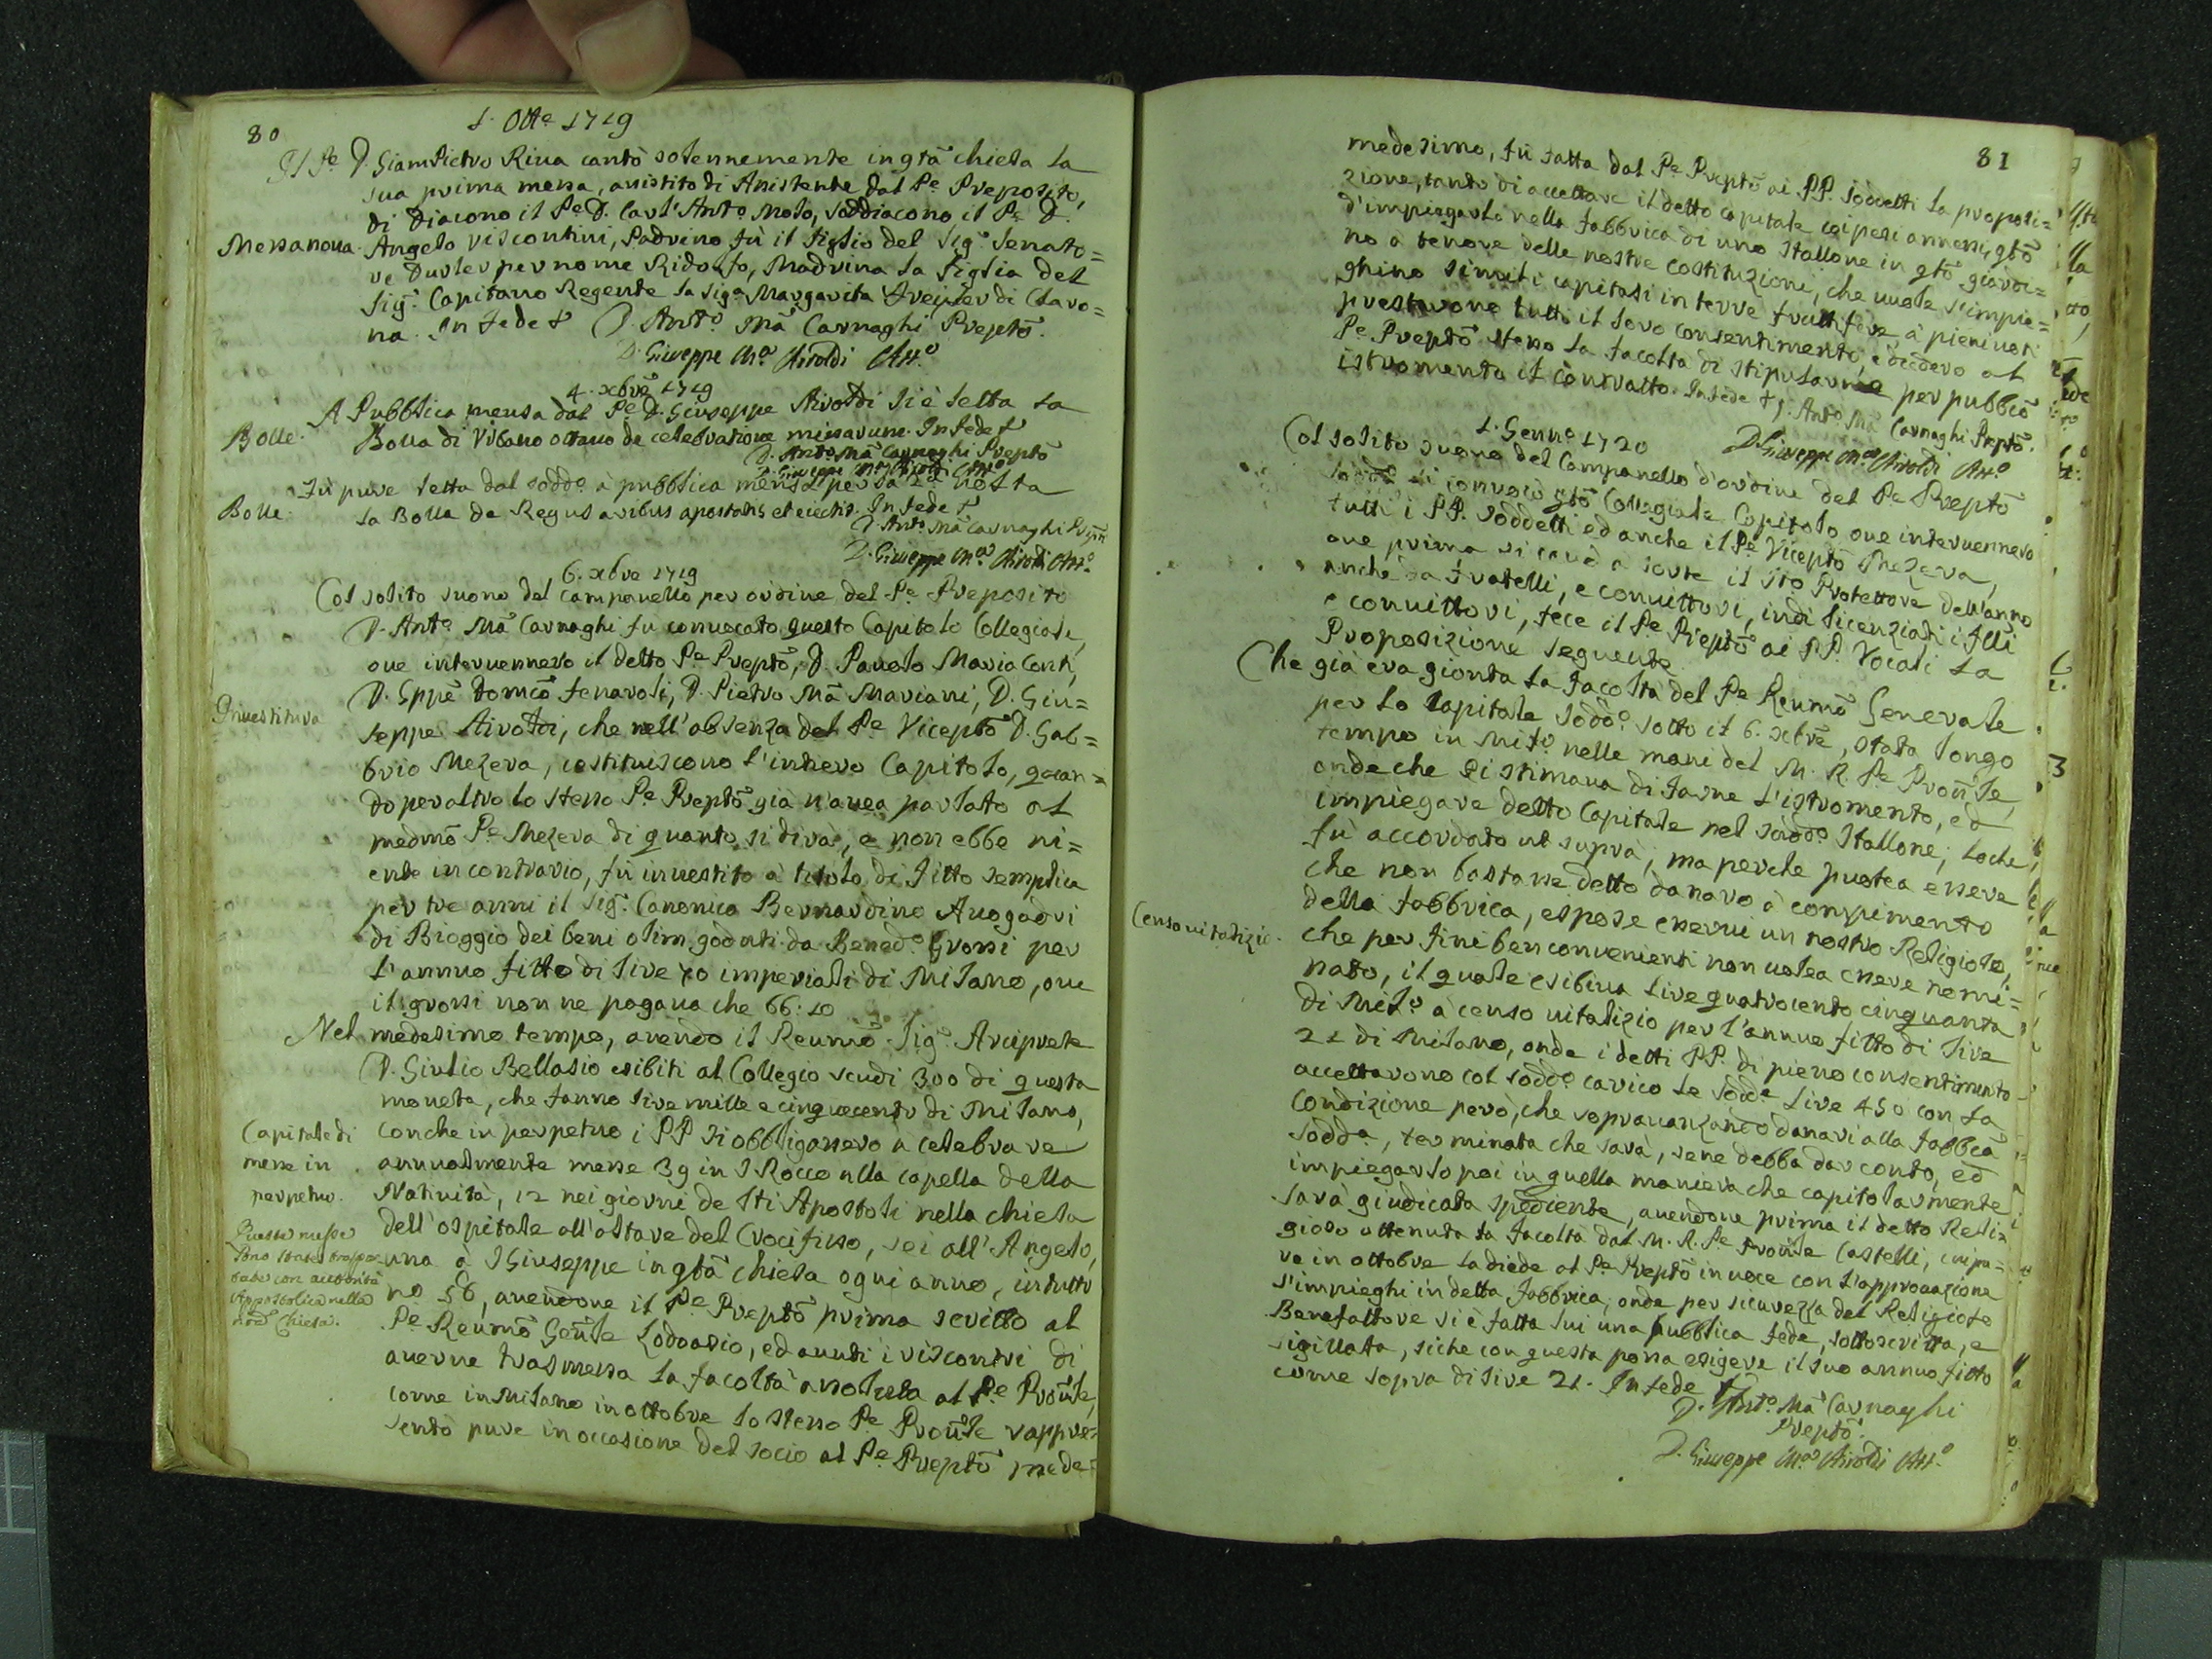 80
1. Otte 1719
Il Pe D. Giam Pietro Riva cantò solennemente in qtā chiesa la
sua prima messa, assistito di Assistente dal Pe Preposito,
di Diacono il Pe D. Carl'Anto Molo, Soddiacono il Pe D.
Messa nova. Angelo Viscontini, Padrino fù il figlio del Sigr Senato=
re Durler per nome Ridolfo, Madrina la figlia del
Sigr Capitano Regente la Siga Margarita di Claro=
na. In fede + D. Anto Mā Carnaghi Prepto.
D. Giuseppe Ma Airoldi Atto
4. xbre 1719
A Pubblica mensa dal Pe D. Giuseppe Airoldi si è letta la
Bolle. Bolla di Vrbano ottavo de celebratione missarum. In fede +
D. Anto Mā Carnaghi Prepto
D. Giuseppe Ma Airoldi Atto
Fù pure letta dal soddo à pubblica mensa per la 2a volta
Bolle. la Bolla de Regularibus apostatis et eiectis. In fede +
D. Anto Mā Carnaghi Prepto
D. Giuseppe Ma Airoldi Atto
6. xbre 1719
Col solito suono del campanello per ordine del Pe Preposito
D. Anto Mā Carnaghi fu convocato questo Capitolo Collegiale,
ove intervennero il detto Pe Prepto, D. Pauolo Maria Conti,
D. Gppe Domco Fenaroli, D. Pietro Mā Mariani, D. Giu=
Investitura
seppe Airoldi, che nell'absenza del Pe Vicepto D. Gab=
brio Mezera, costituiscono l'intero Capitolo, quan=
do per altro lo stesso Pe Prepto già n'avea parlato al
medmo Pe Mezera di quanto si dirà, e non ebbe ni=
ente in contrario, fù investito à titolo di fitto semplice
per tre anni il Sigr Canonico Bernardino Avogadri
di Bioggio dei beni olim goduti da Benedo Grossi per
l'annuo fitto di lire 70 imperiali di Milano, ove
il grossi non ne pagava che 66:10
Nel medesimo tempo, avendo il Reumo Sigr Arciprete
D. Giulio Bellasio esibiti al Collegio scudi 300 di questa
moneta, che fanno lire mille e cinquecento di Milano,
Capitale di conche in perpetuo i PP si obbligassero à celebrare
messe in annualmente messe 39 in S Rocco alla capella della
perpetuo. Natività, 12 nei giorni de Sti Apostoli nella chiesa
dell'ospitale all'altare del Crocifisso, sei all'Angelo,
Queste messe
sono state traspor
tate con autorità
Appostolica nella
nrā Chiesa.
una à S Giuseppe in qtā chiesa ogni anno, in tutto
no 58, avendone il Pe Prepto prima scritto al
Pe Reumo Genle Lodoasio, ed avuti i riscontri di
averne trasmessa la facoltà assoluta al Pe Pronle,
come in Milano in ottobre lo stesso Pe Pronle rappre=
sentò pure in occasione del socio al Pe Prepto mede=
81
medesimo, fù fatta dal Pe Prepto ai PP. soddetti la proposi=
zione, tanto di accettare il detto capitale coi pesi annessi, qto
d'impiegarlo nella fabbrica di uno Stallone in qto giardi=
no à tenore delle nostre costituzioni, che vuole s'impie=
ghino simili capitali in terre fruttifere, à pieni voti
prestarono tutti il loro consentimento, e diedero al
Pe Prepto stesso la facoltà di stipularne per pubblico
istromento il contratto. In fede + D. Anto Mā Carnaghi Prepto.
D. Giuseppe Ma Airoldi Atto
1. Genno 1720
Col solito suono del Campanello d'ordine del Pe Prepto
soddo si convocò qto Collegiale Capitolo ove intervennero
tutti i PP. soddetti ed anche il Pe Vicepto Mezera,
ove prima si cavò à sorte il Sto Protettore dell'anno
anche da fratelli, e convittori, indi licenziati i flli
e convittori, fece il Pe Prepto ai PP. Vocali la
Proposizione seguente
Che già era gionta la facoltà del Pe Reumo Generale
per lo Capitale soddo sotto il 6. xbre, stata longo
tempo in Milo nelle mani del M. R. Pe Pronle,
onde che si stimava di farne l'istromento, ed
impiegare detto Capitale nel soddo Stallone, loche
fù accordato ut supra, ma perche puotea essere
che non bastasse detto danaro à compimento
della fabbrica, espose esservi un nostro Religioso,
Censo vitalizio. che per fini ben convenienti non volea essere nomi=
nato, il quale esibiva lire quatrocento cinquanta
di Milo à censo vitalizio per l'annuo fitto di lire
21 di Milano, onde i detti PP. di pieno consentimento
accettarono col soddo carico le sodde lire 450 con la
Condizione però, che sopravanzando danari alla fabbca
sodda, terminata che sarà, se ne debba dar conto, ed
impiegarlo poi in quella maniera che capitolarmente
sarà giudicata spediente, avendone prima il detto Reli=
gioso ottenuta la facoltà dal M. R. Pe Pronle Castelli, cui pu=
re in ottobre la diede al Pe Prepto in voce con l'approvazione
s'impieghi in detta fabbrica, onde per sicurezza del Religioso
Benefattore si è fatta lui una pubblica fede, sottoscritta, e
sigillata, siche con questa possa esigere il suo annuo fitto
come sopra di lire 21. In fede +
D. Anto Mā Carnaghi
Prepto.
D. Giuseppe Ma Airoldi Atto